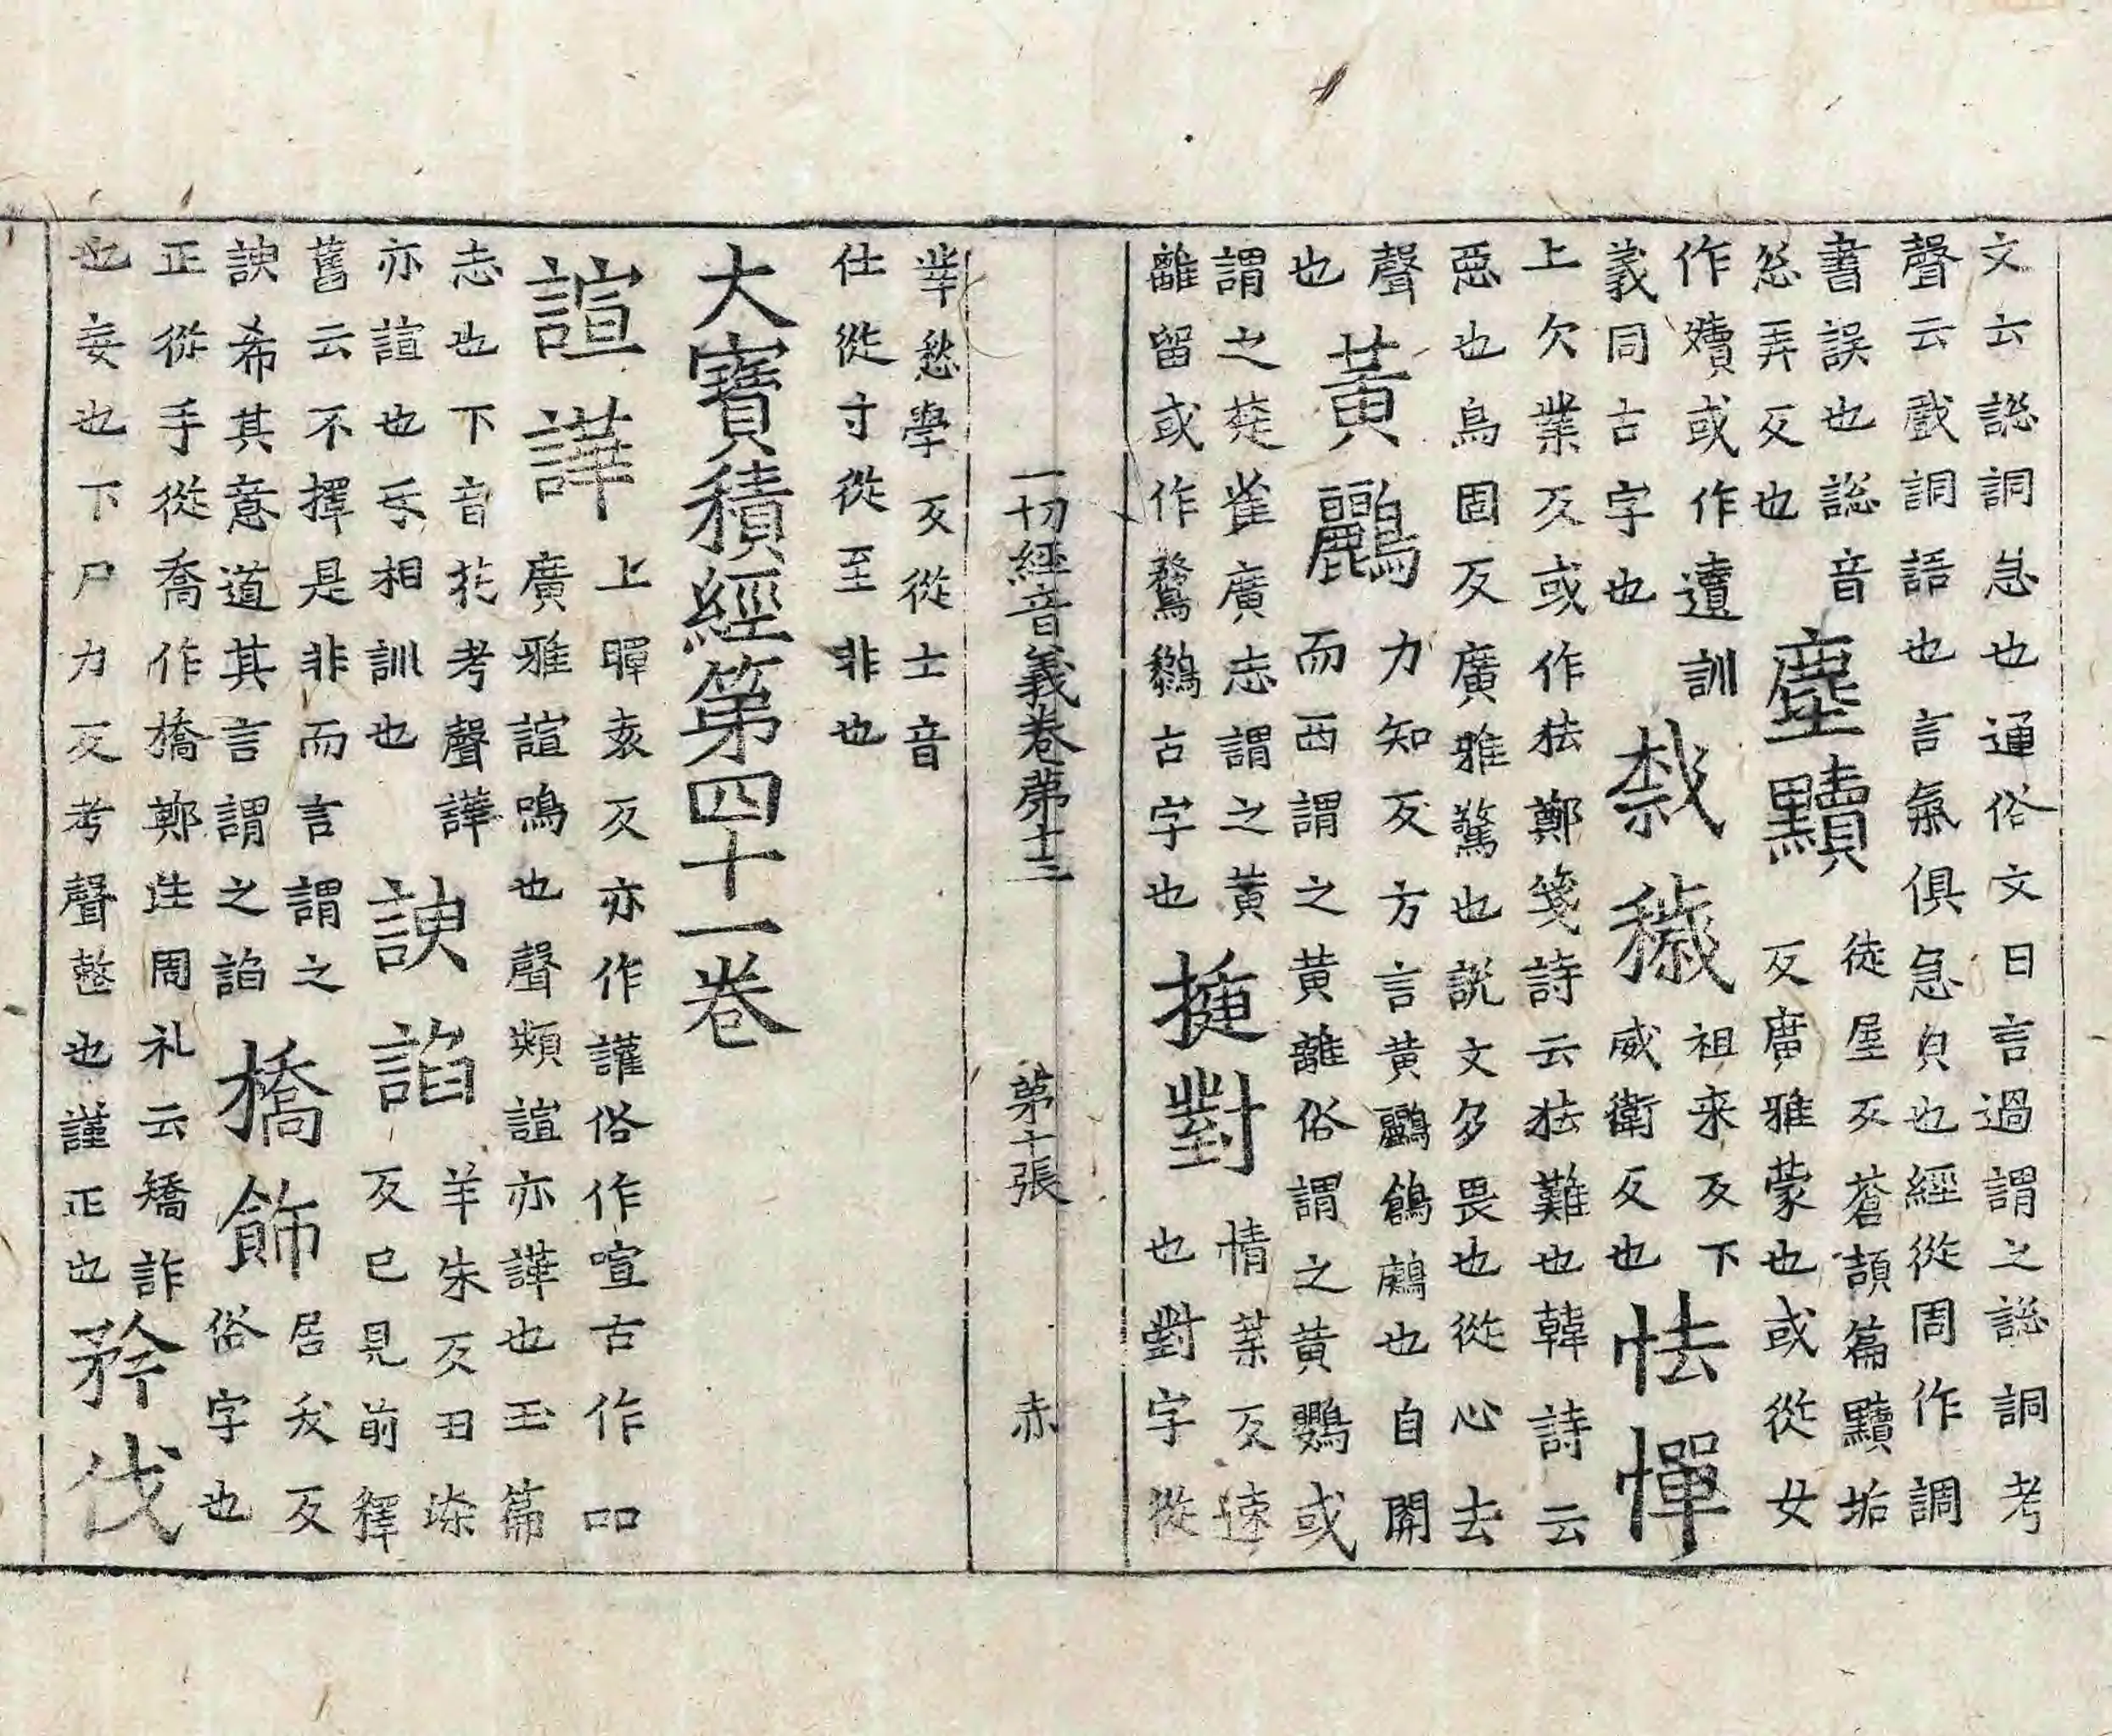 文云謥詷急也通俗文曰言過謂之謥詷考
聲云戲詷語也言氣俱急皃也經從周作調
書誤也謥音
忩弄反也
塵黷
徒屋反蒼頡篇黷垢
反廣雅蒙也或從女
作嬻或作遺訓
義同古字也
裁穢
祖来反下
威衛反也
怯憚
上欠業反或作㹤鄭箋詩云㹤難也韓詩云
惡也烏固反廣雅驚也說文多畏也從心去
聲
也
黃鸝
力知反方言黃鸝鶬鶊也自關
而西謂之黃離俗謂之黃鸎或
謂之楚雀廣志謂之黃
離留或作鶖鶹古字也
揵對
情葉反速
也對字從
丵愁學反從士音
仕從寸從至非也
一切經音義卷第十三 第十張 赤
大寶積經第四十一卷
諠譁
上暉袁反亦作讙俗作喧古作吅
廣雅諠鳴也聲類諠亦譁也玉篇
忘也下音花考聲譁
亦諠也互相訓也
諛諂
羊朱反丑染
反已見前釋
舊云不擇是非而言謂之
諛希其意道其言謂之諂
撟飾
居夭反
俗字也
正從手從喬作撟鄭注周礼云矯詐
也妄也下尸力反考聲整也謹正也
矜伐